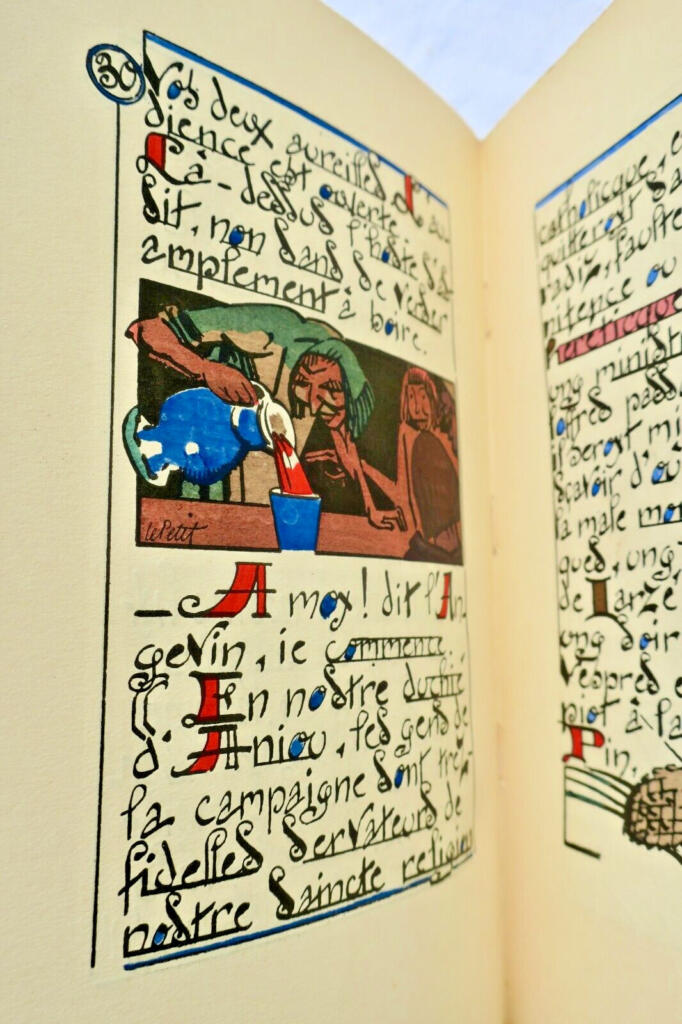 30
Vos deux aureilles L'au-
dience est ouverte.
Là-dessus l'hoste s'as-
sit, non sans se verser
amplement à boire.
le Petit
— A moy! dit l'An-
gevin, ie commence.
En nostre duchié
d'Aniou, les gens de
la campaigne sont très
fidelles servateurs de
nostre saincte religion
catholicque,
faulte
ou
hereticque
ung
il
scavoir d'où
la male
ques, ung
de Iarzé
ung soir
Vespres
piot à la
Pin,